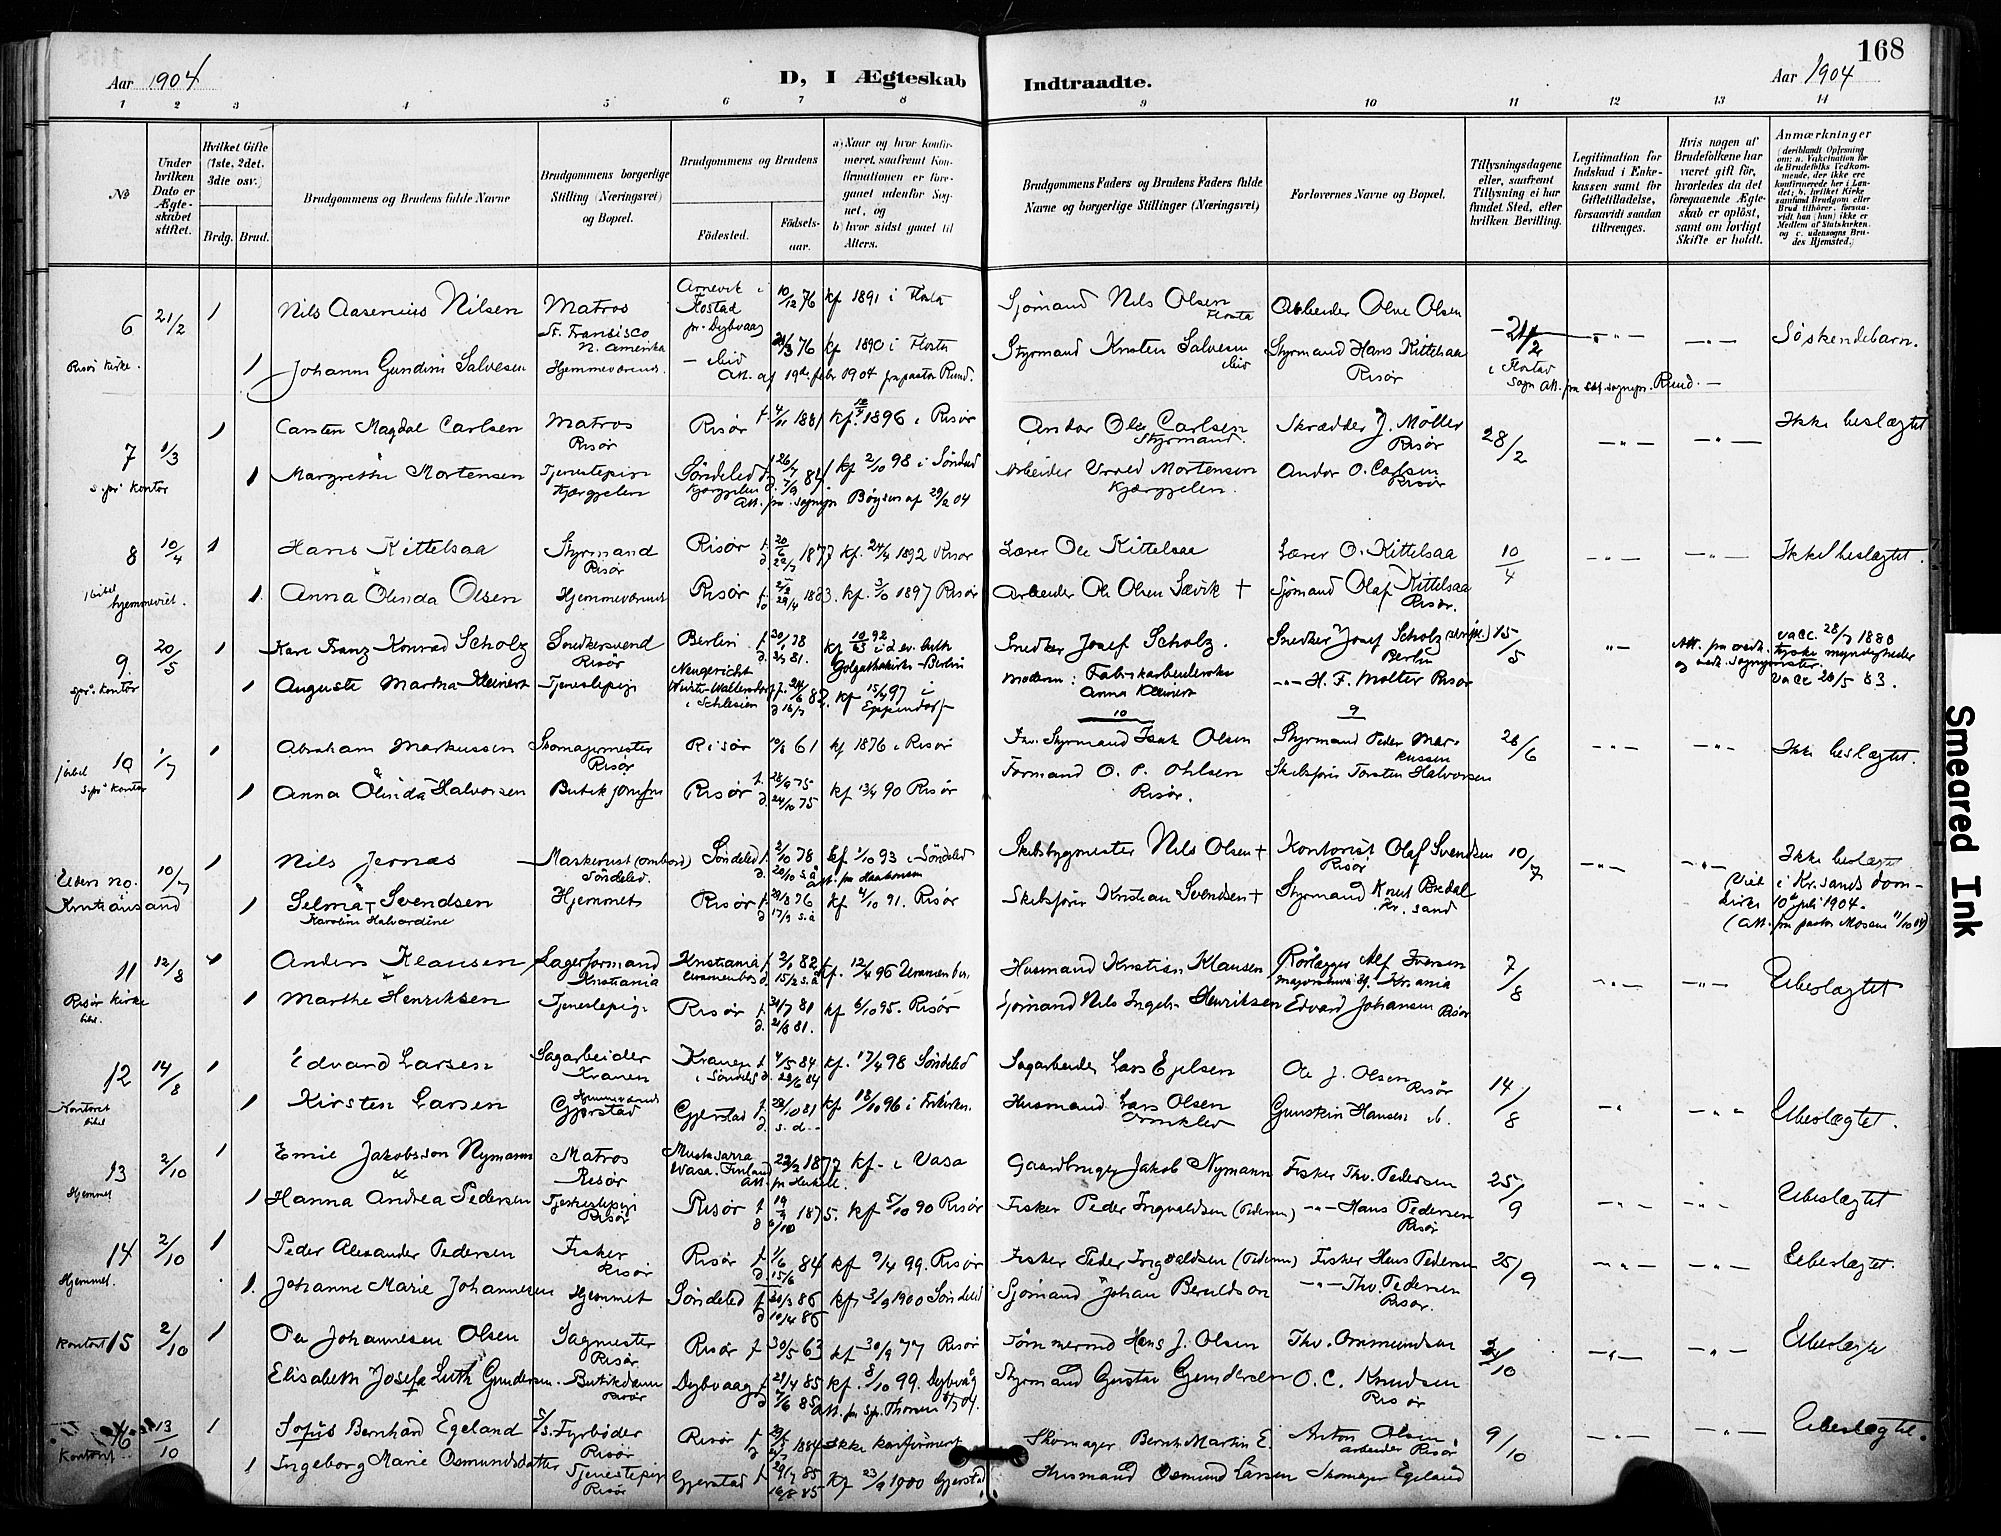 168
Aar 1904
D, I Ægteskab Indtraadte.
Aar 1904
1 2 3 4 5 6 7 8 9 10 11 12 13 14
No
Under hvilken Dato er Ægteskabet stiftet.
Hvilket Gifte (1ste, 2det, 3die osv.)
Brdg. Brud.
Brudgommens og Brudens fulde Navne
Brudgommens borgerlige Stilling (Næringsvei) og Bopæl.
Brudgommens og Brudens
Fødested.
Fødselsaar.
a) Naar og hvor konfirmeret, saafremt Konfirmationen er foregaaet udenfor Sognet, og
b) hvor sidst gaaet til Alters.
Brudgommens Faders og Brudens Faders fulde Navne og borgerlige Stillinger (Næringsvei)
Forlovernes Navne og Bopæl.
Tillysningsdagene eller, saafremt Tillysning ei har fundet Sted, efter hvilken Bevilling.
Legitimation for Indskud i Enkekassen samt for Giftetilladelse, forsaavidt saadan tiltrænges.
Hvis nogen af Brudefolkene har været gift før, hvorledes da det foregaaende Ægteskab er opløst, samt om lovligt Skifte er holdt.
Anmærkninger
6 21/2 1 Nils Aasenius Nilsen Matros St. Francisco N. Amerika Arnevik i Flostad pr. Dybvaag 10/12 76 kf 1891 i Flosta Sjømand Nils Olsen Flosta Arbeider Olve Olsen 21/2 Søskendebarn.
Risør kirke. 1 Johanne Gundine Salvesen Hjemmeværende ibid 76 kf 1890 i Flosta Styrmand Kristen Salvesen ibid Styrmand Hans Kittelsaa Risør i Flostad
Att. af 19de febr 1904 fra pastor Rund.
7 1/3 1 Carsten Magdal Carlsen Matros Risør Risør 4/11 1881 kf. 1896 i Risør Andor Ole Carlsen Styrmand Skrædder J. Møller Risør 28/2 Ikke beslægtet
s.pr. kontor 1 Margrethe Mortensen Tjenestepige Søndeled f 26/7 84 kf 2/10 98 i Søndeled Arbeider Mortensen Andor O. Carlsen Risør
Att. fra sognepr Bøysen af 29/2 04
8 10/4 1 Hans Kittelsaa Styrmand Risør Risør 20/6 1877 kf. 24/4 1892 Risør Lærer Ole Kittelsaa Lærer O. Kittelsaa 10/4 Ikke beslægtet.
hjemmeviet. 1 Anna Olinda Olsen Hjemmeværende Risør 1883. kf. 3/10 1897 Risør Arbeider Ole Olsen Sævik + Sjømand Olaf Kittelsaa Risør.
9. 20/5 1 Karl Franz Konrad Scholz Snedkersvend Risør Berlin f. 30/1 78 Golgathakirke Berlin Snedker Josef Scholz. Snedker Josef Scholz Berlin 15/5 vacc. 28/7 1880
s.pr. kontor 1 Auguste Martha Kleinert Tjenestepige i Schlesien 82. kf 15/4 97 i Eppendorf Moderen: Fabrikarbeiderske Anna Kleinert H. F. Molter Risør vacc 20/5 83.
10 1/7 1 Abraham Markussen Skomagermester Risør Risør 61 kf 1876 i Risør Fhv. Styrmand Isak Olsen Styrmand Peder Markussen 26/6 Ikke beslægtet.
s.pr. kontor 1 Anna Olinda Halvorsen Butikjomfru Risør f. 28/9 75 d. 24/10 75 kf 13/4 90 Risør Formand O. P. Ohlsen Risør. Skibsfører Torsten Halvorsen
10/7 1 Nils Jernæs Maskinist (ombord) Søndeled. Søndeled f 2/10 78 kf. 1/10 93 i Søndeled Skibsbygmester Nils Olsen + Kontorist Olaf Svendsen Risør 10/7 Ikke beslægtet
Kristiansand 1 Selma Svendsen Karoline Halvardine Hjemmet Risør 76 kf 4/10 91. Risør Skibsfører Kristian Svendsen + Styrmand Knut Bredal Kr. sand Viet i Kr.sands domkirke 10de juli 1904. (Att. fra pastor Mosene 11/10 04)
11 12/8 1 Anders Klausen Lagerformand Kristiania Kristiania 82 kf. 12/4 96 Uranienbor Husmand Kristian Klausen Rørlægger Alf Iversen Kr.ania 7/8 Ubeslægtet
Risør kirke 1 Marthe Henriksen Tjenestepige Risør f. 31/7 81 d. 21/8 81. kf 6/10 95. Risør Sjømand Nils Ingebr. Henriksen Edvard Johansen Risør
12 14/8 1 Edvard Larsen Sagarbeider Kranen Kranen i Søndeled f 4/5 84 d. 22/6 84 kf. 17/4 98 Søndeled Sagarbeider Lars Ejelsen Ole J. Olsen Risør 14/8
Kontoret 1 Kirsten Larsen Hjemmeværende Gjerstad Gjerstad f. 28/10 81 kf 18/10 96 i Frikirken. Husmand Lars Olsen Gunstein Hansen ib. Ubeslægtet.
13 2/10 1 Emil Jakobsson Nymann & Matros Risør Mustasaari Wasa, Finland 22/2 1877 kf. i Vasa Gaardbruger Jakob Nymann Fisker Thv. Pedersen 25/9
Hjemmet 1 Hanna Andrea Pedersen Tjenestepige Risør Risør 1875. kf 5/10 90 Risør Fisker Peder Ingvaldsen (Pedersen) Hans Pedersen Risør Ubeslægtet
14 2/10 1 Peder Alexander Pedersen Fisker Risør Risør f. 1/6 84 d. 15/6 kf 9/4 99. Risør Fisker Peder Ingvaldsen (Pedersen) Fisker Hans Pedersen 25/9 Ubeslægtet.
Hjemmet. 1. Johanne Marie Johannesen Hjemmet Søndeled 86 d 10/4 86 kf. 3/9 1900 Søndeled Sjømand Johan Beruldsen Thv. Pedersen Risør.
Kontoret 15 2/10 1 Per Johannesen Olsen Sagmester Risør. Risør f 30/5 63 kf 30/9 77 Risør Tømmermd Hans J. Olsen Thv. Ommundsen 2/10 Ubeslægtet
Elisabeth Josefa Luth Gundersen. Butikdame Risør Dybvaag f. 21/4 85 kf. 8/10 99. Dybvåg Styrmand Gustav Gundersen O. C. Knudsen Risør
16 13/10 1 Sofus Bernhard Egeland Fyrbøder Risør Risør 1884 ikke konfirmert Skomager Bernh. Martin E. Anton Olsen, arbeider Risør 9/10 Ubeslægtet.
Kontoret 1 Ingeborg Marie Osmundsdatter Tjenestepige Risør Gjerstad f 29/7 85 16/8 85 kf 23/9 1900 Gjerstad Husmand Osmund Larsen Skomager Egeland
Smeared Ink